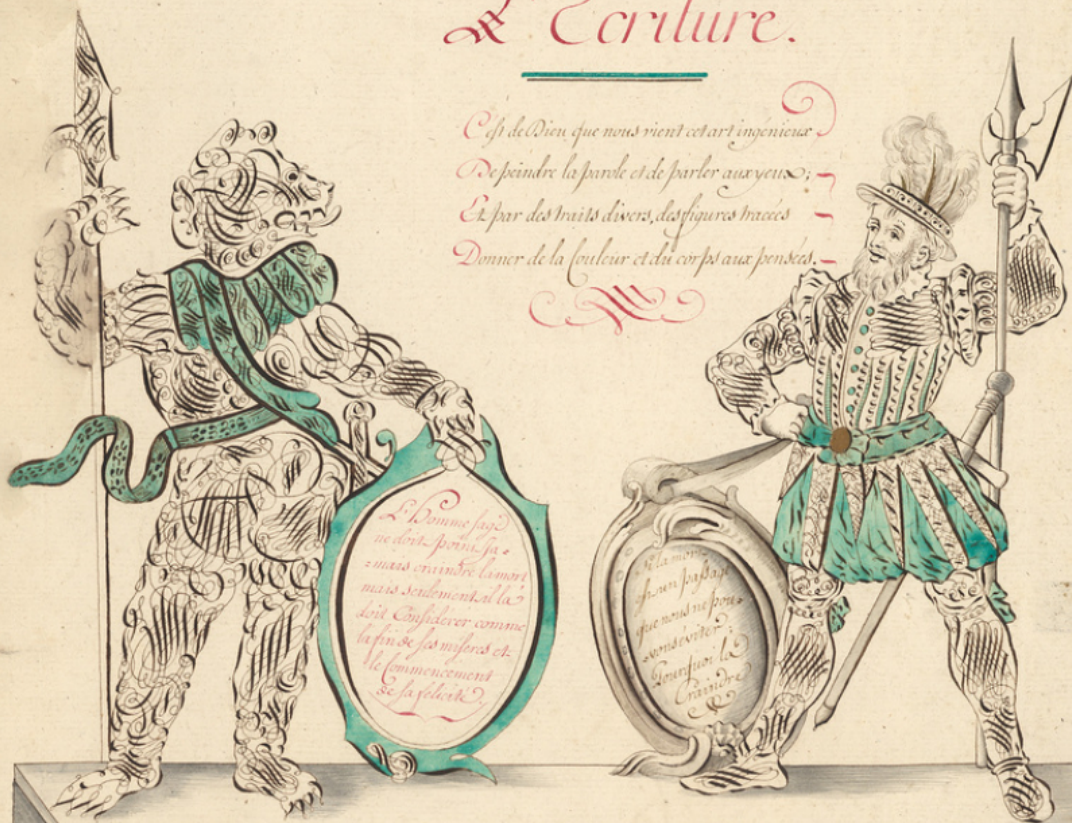 L'Ecriture.
C'est de Dieu que nous vient cet art ingénieux
De peindre la parole et de parler aux yeux;
Et par des traits divers, des figures tracées
Donner de la Couleur et du corps aux pensées.
L'Homme sage
ne doit point Ja-
-mais craindre la mort
mais seulement il la
doit Considerer comme
la fin de ses miseres et
le Commencement
de sa felicité.
la mort
est un passage
que nous ne pou-
-vons éviter
Pourquoi la
Craindre